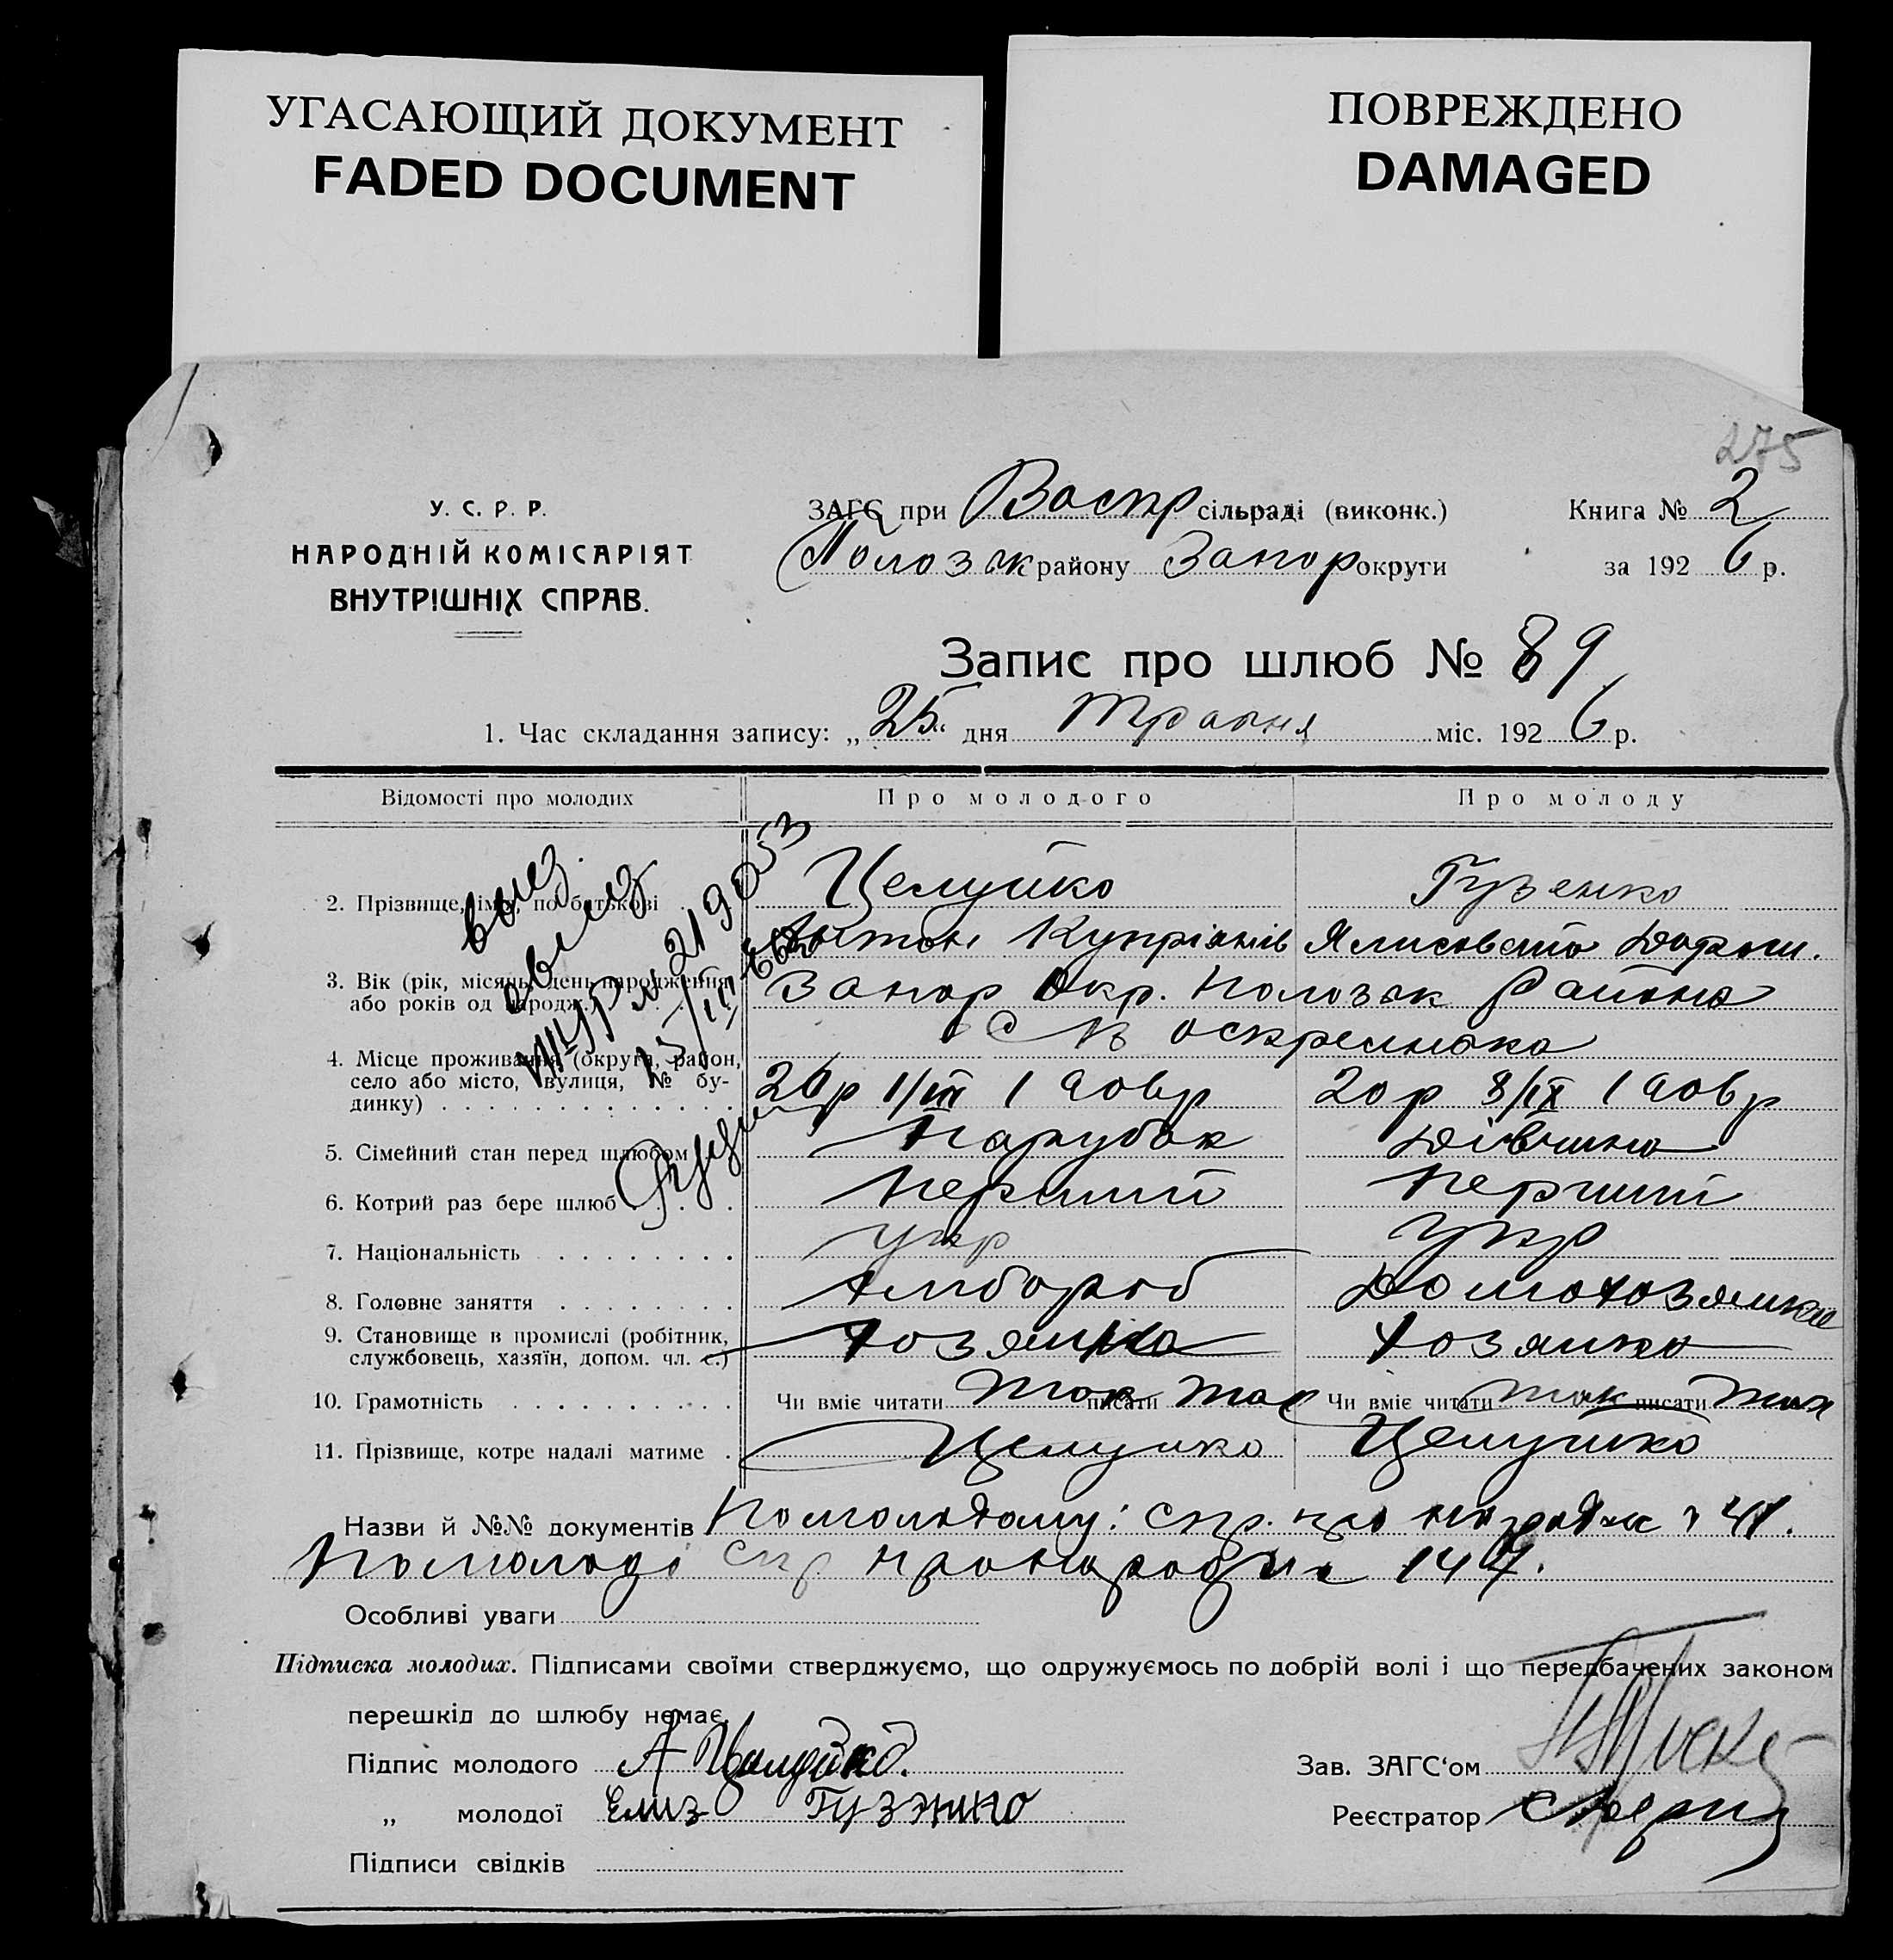 УГАСАЮЩИЙ ДОКУМЕНТ
FADED DOCUMENT
ПОВРЕЖДЕНО
DAMAGED
275
У. С. Р. Р.
НАРОДНІЙ КОМІСАРІЯТ
ВНУТРІШНІХ СПРАВ.
ЗАГС при Воскр сільраді (виконк.)
Полозьк району Запор округи
Книга № 2
за 1926 р.
Запис про шлюб № 89
1. Час складання запису: „25“ дня травня міс. 1926 р.
Відомості про молодих Про молодого Про молоду
2. Прізвище, імя, по батькові . Целуйко Гузенко
Антон Купріянів Ялисовета Дорош.
3. Вік (рік, місяць, день народження або років од народж.) Запор Окр. Полозьк Району
4. Місце проживання (округа, район, село або місто, вулиця, № будинку) С Воскресенька
20р 1/III 1906р 20р 8/IX 1906р
5. Сімейний стан перед шлюбом Парубок Дівчина
6. Котрий раз бере шлюб Перший Перший
7. Національність укр укр
8. Головне заняття Хлібороб Домохозяйка
9. Становище в промислі (робітник, службовець, хазяїн, допом. чл. с.) Хозяїн Хозяйка
10. Грамотність Чи вміє читати так писати так Чи вміє читати так писати так
11. Прізвище, котре надалі матиме . Целуйко Целуйко
Назви й №№ документів По молодому: спр. про народж 41.
По молоді спр про народж 147.
Особливі уваги
Підписка молодих. Підписами своїми стверджуємо, що одружуємось по добрій волі і що передбачених законом
перешкід до шлюбу немає.
Підпис молодого А Целуйко.
„ молодої Елиз Гузэнко
Підписи свідків
Зав. ЗАГС‘ом
Реєстратор